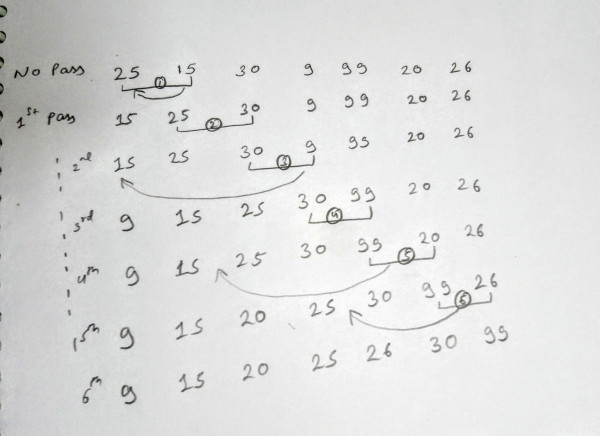 No Pass 25 15 30 9 99 20 26
1
1st Pass 15 25 30 9 99 20 26
2
2nd 15 25 30 9 99 20 26
3
3rd 9 15 25 30 99 20 26
4
4th 9 15 25 30 99 20 26
5
15th 9 15 20 25 30 99 26
6
6th 9 15 20 25 26 30 99